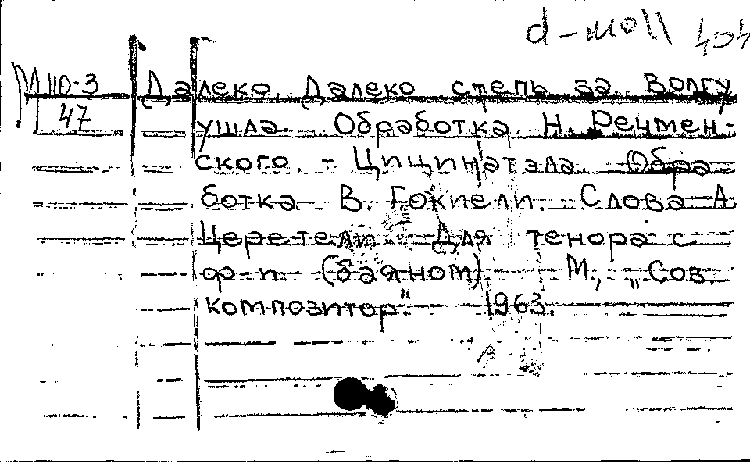 d-moll 404
М110-3 Далеко, Далеко степь за Волгу
47 ушла. Обработка Н. Речмен-
ского. - Цицинатэла. Обра-
ботка В. Гокиели. Слова А.
Церетели. Для тенора с
ф-п (баяном). М., „Сов.
композитор" 1963.